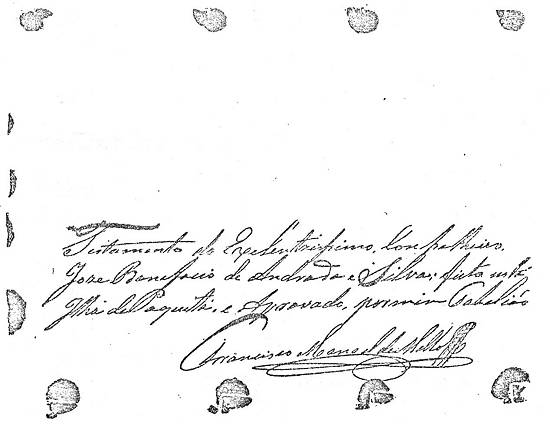 Testamento do Exelentissimo Conselheiro,
Joze Bonefacio de Andrada e Silva; feito nesta
Ilha de Paquetá, e Aprovado, por mim Tabelião
Francisco Manoel de Mello